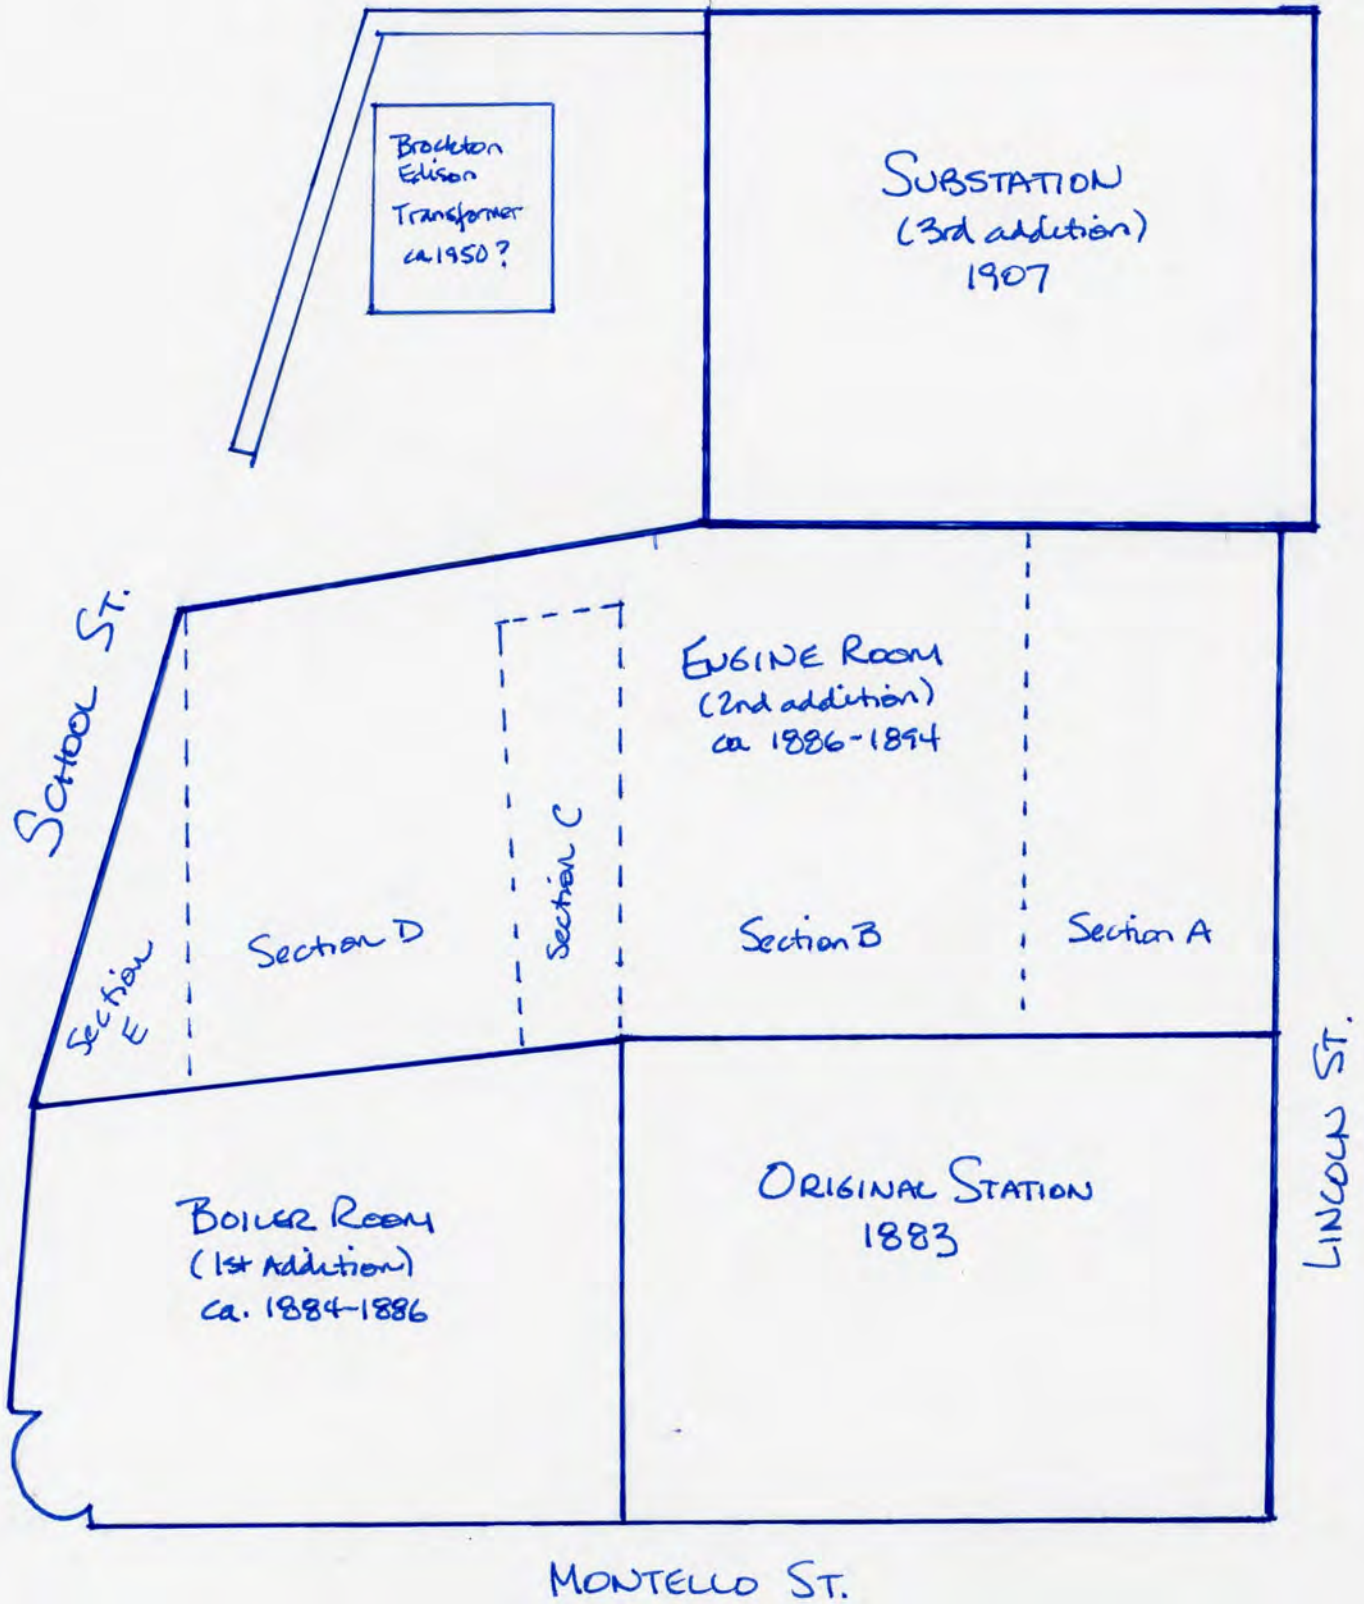 Brockton
Edison
Transformer
ca 1950?
SUBSTATION
(3rd addition)
1907
SCHOOL ST.
ENGINE ROOM
(2nd addition)
ca 1886-1894
Section C
Section D
Section B
Section A
Section
E
LINCOLN ST.
BOILER ROOM
(1st Addition)
ca. 1884-1886
ORIGINAL STATION
1883
MONTELLO ST.